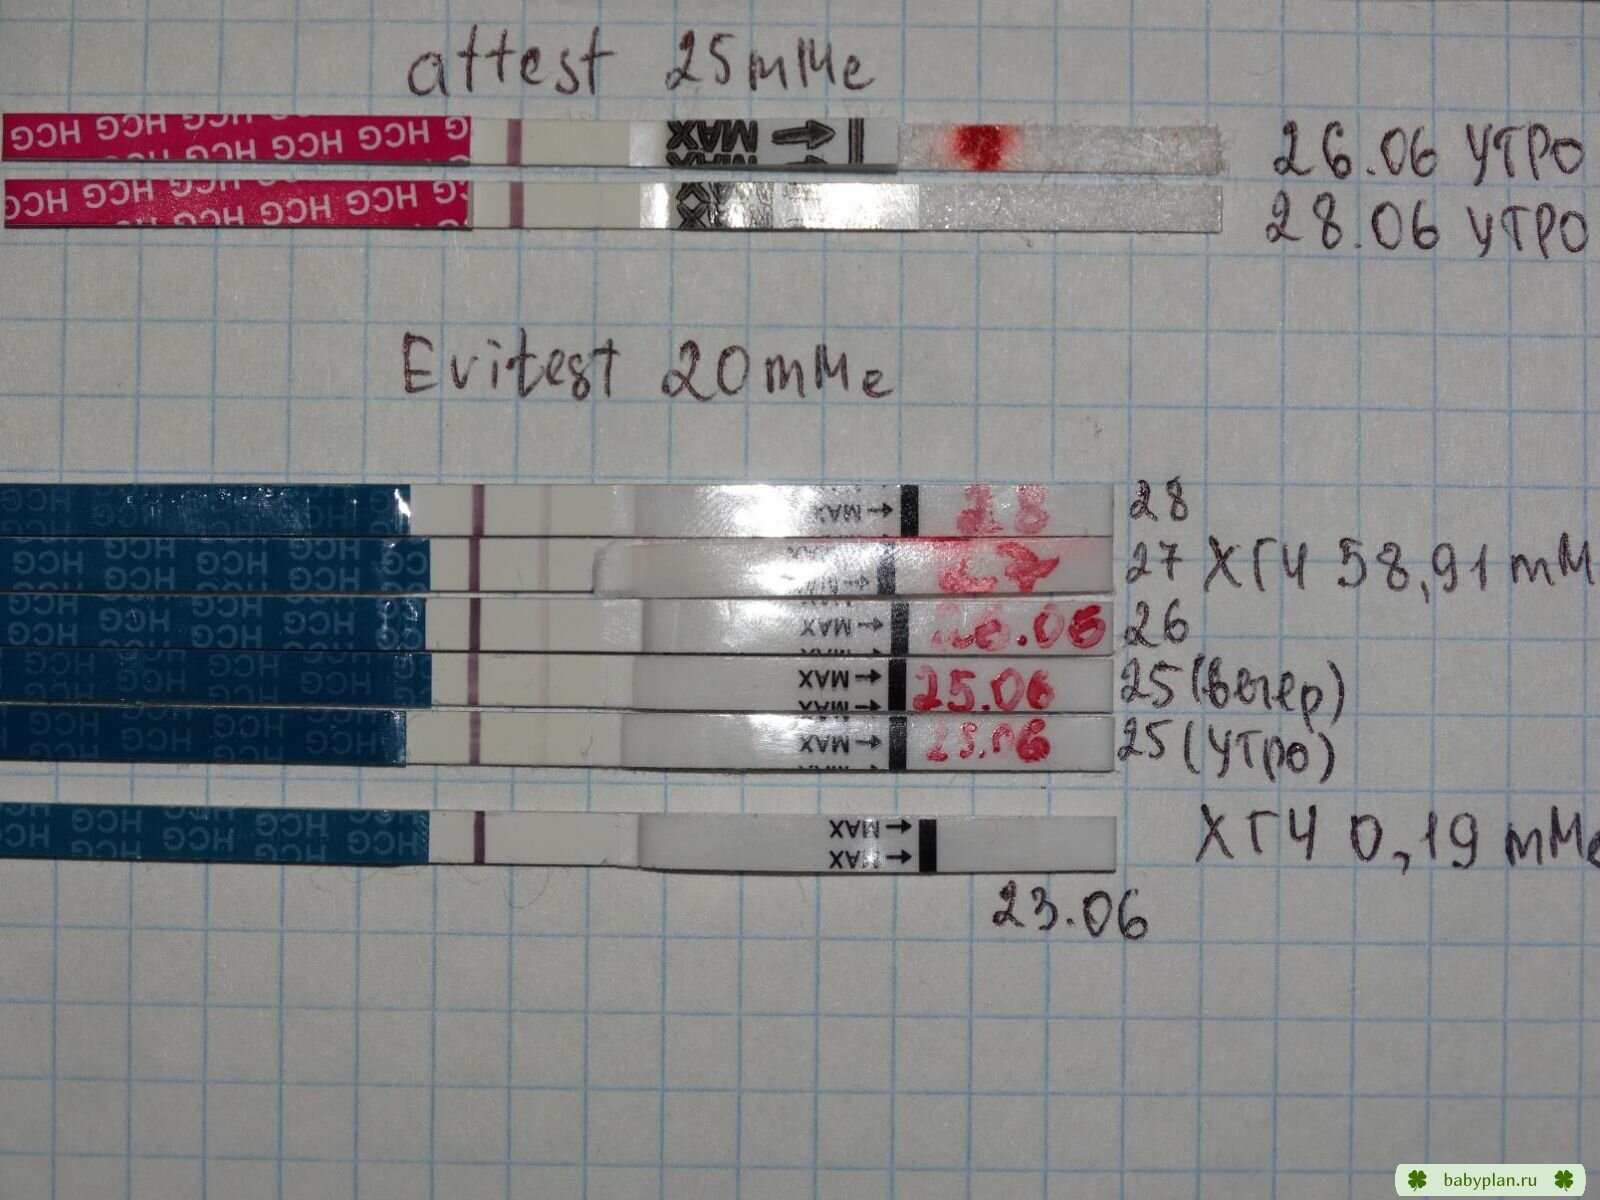 attest 25mMe
HCG HCG HCG HCG HCG
MAX
26.06 УТРО
HCG HCG HCG HCG HCG
28.06 УТРО
Evitest 20mMe
HCG HCG HCG HCG
MAX
28
28
HCG HCG HCG HCG
27
27 ХГЧ 58,91 mM
HCG HCG HCG HCG
MAX
26.06
26
HCG HCG HCG HCG
MAX
25.06
25 (вечер)
HCG HCG HCG HCG
MAX
25.06
25 (утро)
HCG HCG HCG HCG
MAX
MAX
ХГЧ 0,19 mMe
23.06
babyplan.ru